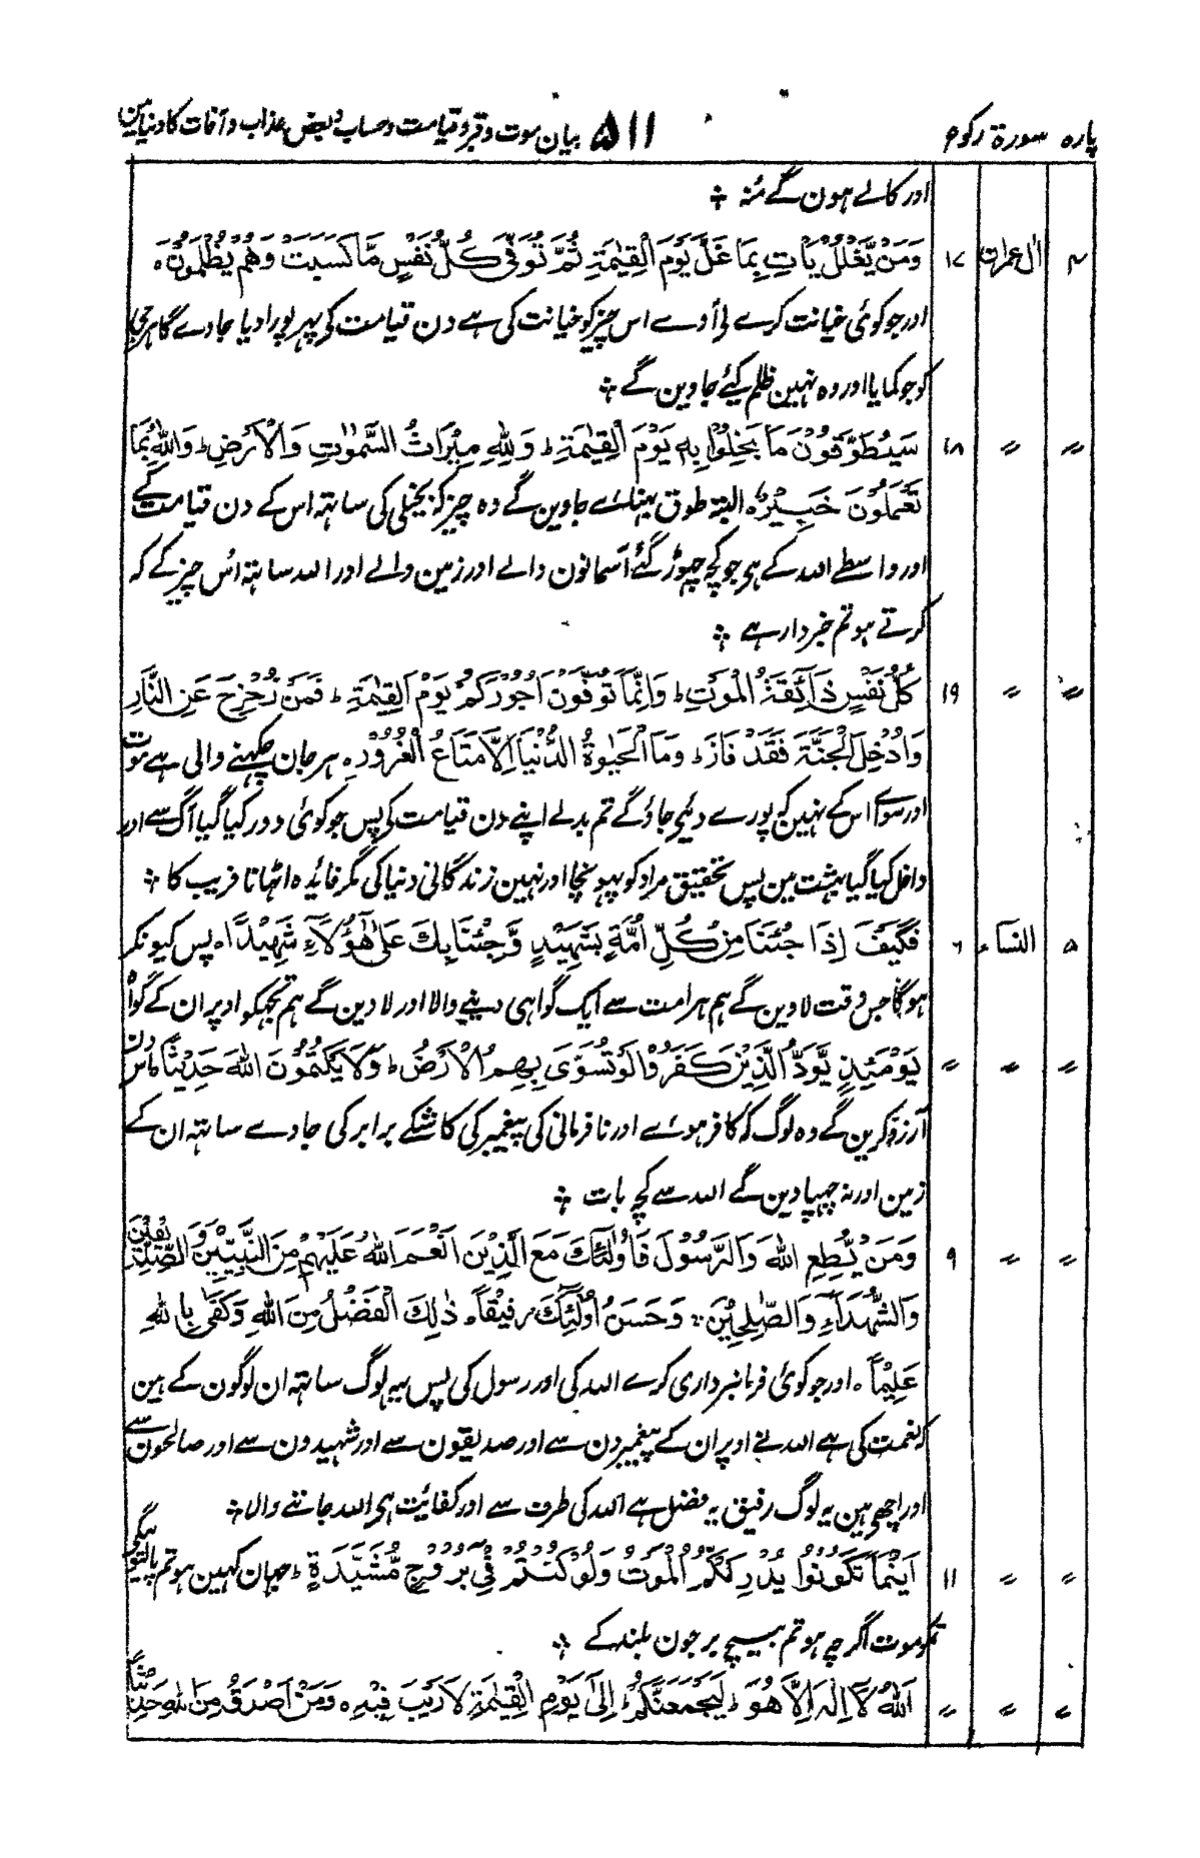 پارہ سورۃ رکوع ۵۱۱ بیان موت و قبر و قیامت و حساب و بعض عذاب و آفات کا دنیا مین
اور کالے ہون گے مُنہ ÷
۴ اٰل عمران ۱۷ وَمَنْ يَّغْلُلْ يَأْتِ بِمَا غَلَّ يَوْمَ الْقِيٰمَةِ ثُمَّ تُوَفّٰى كُلُّ نَفْسٍ مَّا كَسَبَتْ وَهُمْ لَا يُظْلَمُوْنَ ٥
اور جو کوئی خیانت کرے لاوے اس چیز کو خیانت کی ہے دن قیامت کی پہر پورا دیا جاوے گا ہر جی
کو جو کمایا اور وہ نہین ظلم کیئے جاوین گے ÷
〃 〃 ۱۸ سَيُطَوَّقُوْنَ مَا بَخِلُوْا بِهٖ يَوْمَ الْقِيٰمَةِ ط وَلِلّٰهِ مِيْرَاثُ السَّمٰوٰتِ وَالْاَرْضِ ط وَاللّٰهُ بِمَا
تَعْمَلُوْنَ خَبِيْرٌ ٥ البتہ طوق پہنائے جاوین گے وہ چیز کہ بخیلی کی ساتہہ اس کے دن قیامت کے
اور واسطے اللہ کے ہی جو کچہ چہوڑ گئے آسمانون والے اور زمین والے اور اللہ ساتہہ اُس چیز کے کہ
کرتے ہو تم خبردار ہے ÷
〃 〃 ۱۹ كُلُّ نَفْسٍ ذَآئِقَةُ الْمَوْتِ ط وَاِنَّمَا تُوَفَّوْنَ اُجُوْرَكُمْ يَوْمَ الْقِيٰمَةِ ط فَمَنْ زُحْزِحَ عَنِ النَّارِ
وَاُدْخِلَ الْجَنَّةَ فَقَدْ فَازَ ط وَمَا الْحَيٰوةُ الدُّنْيَا اِلَّا مَتَاعُ الْغُرُوْرِ ٥ ہر جان چکہنے والی ہے موت
اور سواے اس کے نہین کہ پورے دئیے جاؤ گے تم بدلے اپنے دن قیامت کی پس جو کوئی دور کیا گیا آگ سے اور
داخل کیا گیا بہشت مین پس تحقیق مراد کو پہونچا اور نہین زندگانی دنیا کی مگر فائدہ اٹہانا فریب کا ÷
۵ النساء ۶ فَكَيْفَ اِذَا جِئْنَا مِنْ كُلِّ اُمَّةٍ بِشَهِيْدٍ وَّجِئْنَا بِكَ عَلٰى هٰٓؤُلَآءِ شَهِيْدًا ٥ پس کیونکر
ہوگا جس وقت لاوین گے ہم ہر امت سے ایک گواہی دینے والا اور لاوین گے ہم تجہکو اوپر ان کے گواہ
〃 〃 〃 يَوْمَئِذٍ يَّوَدُّ الَّذِيْنَ كَفَرُوْا لَوْ تُسَوّٰى بِهِمُ الْاَرْضُ ط وَلَا يَكْتُمُوْنَ اللّٰهَ حَدِيْثًا اس دن
آرزو کرین گے وہ لوگ کہ کافر ہوئے اور نافرمانی کی پیغمبر کی کاشکے برابر کی جاوے ساتہہ ان کے
زمین اور نہ چہپا دین گے اللہ سے کچہ بات ÷
〃 〃 ۹ وَمَنْ يُّطِعِ اللّٰهَ وَالرَّسُوْلَ فَاُولٰٓئِكَ مَعَ الَّذِيْنَ اَنْعَمَ اللّٰهُ عَلَيْهِمْ مِنَ النَّبِيّٖنَ وَالصِّدِّيْقِيْنَ
وَالشُّهَدَآءِ وَالصّٰلِحِيْنَ ۚ وَحَسُنَ اُولٰٓئِكَ رَفِيْقًا ٥ ذٰلِكَ الْفَضْلُ مِنَ اللّٰهِ وَكَفٰى بِاللّٰهِ
عَلِيْمًا ٥ اور جو کوئی فرمانبرداری کرے اللہ کی اور رسول کی پس یہ لوگ ساتہہ ان لوگون کے ہین
کہ نعمت کی ہے اللہ نے اوپر ان کے پیغمبرون سے اور صدیقون سے اور شہیدون سے اور صالحون سے
اور اچہے ہین یہ لوگ رفیق یہ فضل ہے اللہ کی طرف سے اور کفائیت ہی اللہ جاننے والا ÷
〃 〃 ۱۱ اَيْنَمَا تَكُوْنُوْا يُدْرِكْكُّمُ الْمَوْتُ وَلَوْ كُنْتُمْ فِيْ بُرُوْجٍ مُّشَيَّدَةٍ ط جہان کہین ہو تم پالیویگی
تمکو موت اگرچہ ہو تم بیچ برجون بلند کے ÷
〃 〃 〃 اَللّٰهُ لَآ اِلٰهَ اِلَّا هُوَ ط لَيَجْمَعَنَّكُمْ اِلٰى يَوْمِ الْقِيٰمَةِ لَا رَيْبَ فِيْهِ ٥ وَمَنْ اَصْدَقُ مِنَ اللّٰهِ حَدِيْثًا